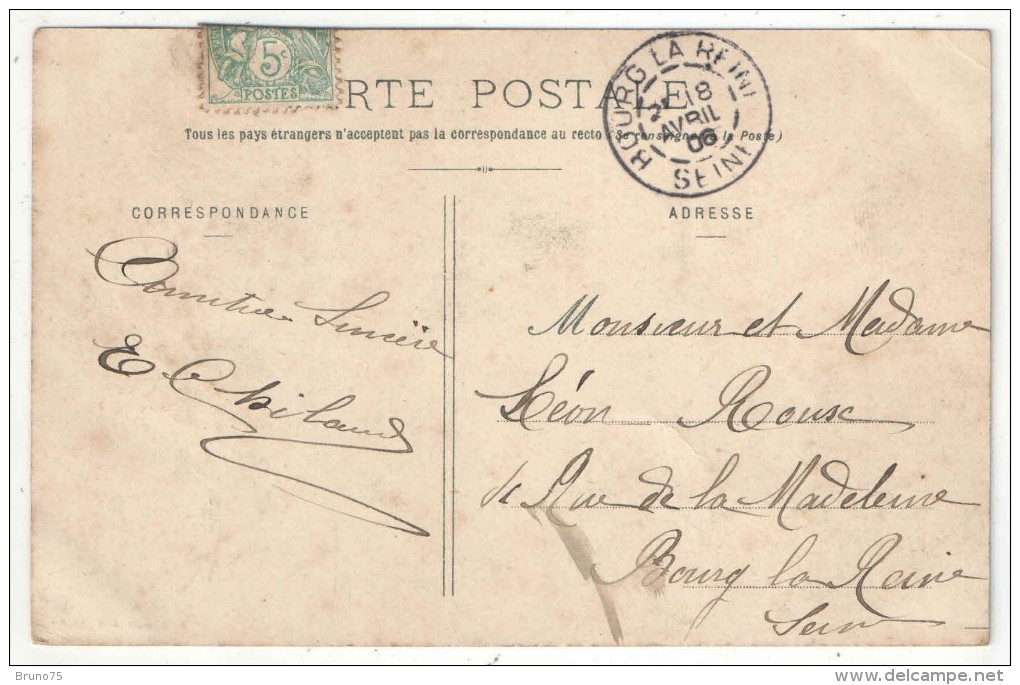 5c
POSTES
RTE POSTALE
Tous les pays étrangers n'acceptent pas la correspondance au recto (Se renseigner à la Poste)
BOURG LA REINE
18
AVRIL
06
SEINE
CORRESPONDANCE
ADRESSE
Sincère
E
Monsieur et Madame
Léon Roux
Rue de la Madeleine
Bourg la Reine
Seine
Bruno75
delcampe.net